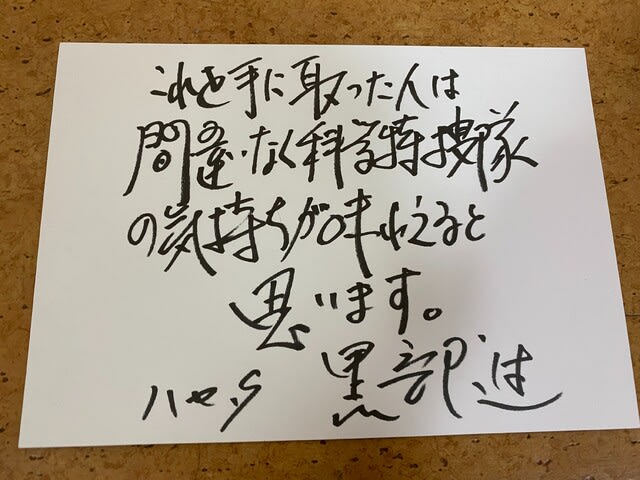 これを手に取った人は
間違いなく科学特捜隊
の気持ちが味わえると
思います。
ハヤタ 黒部進